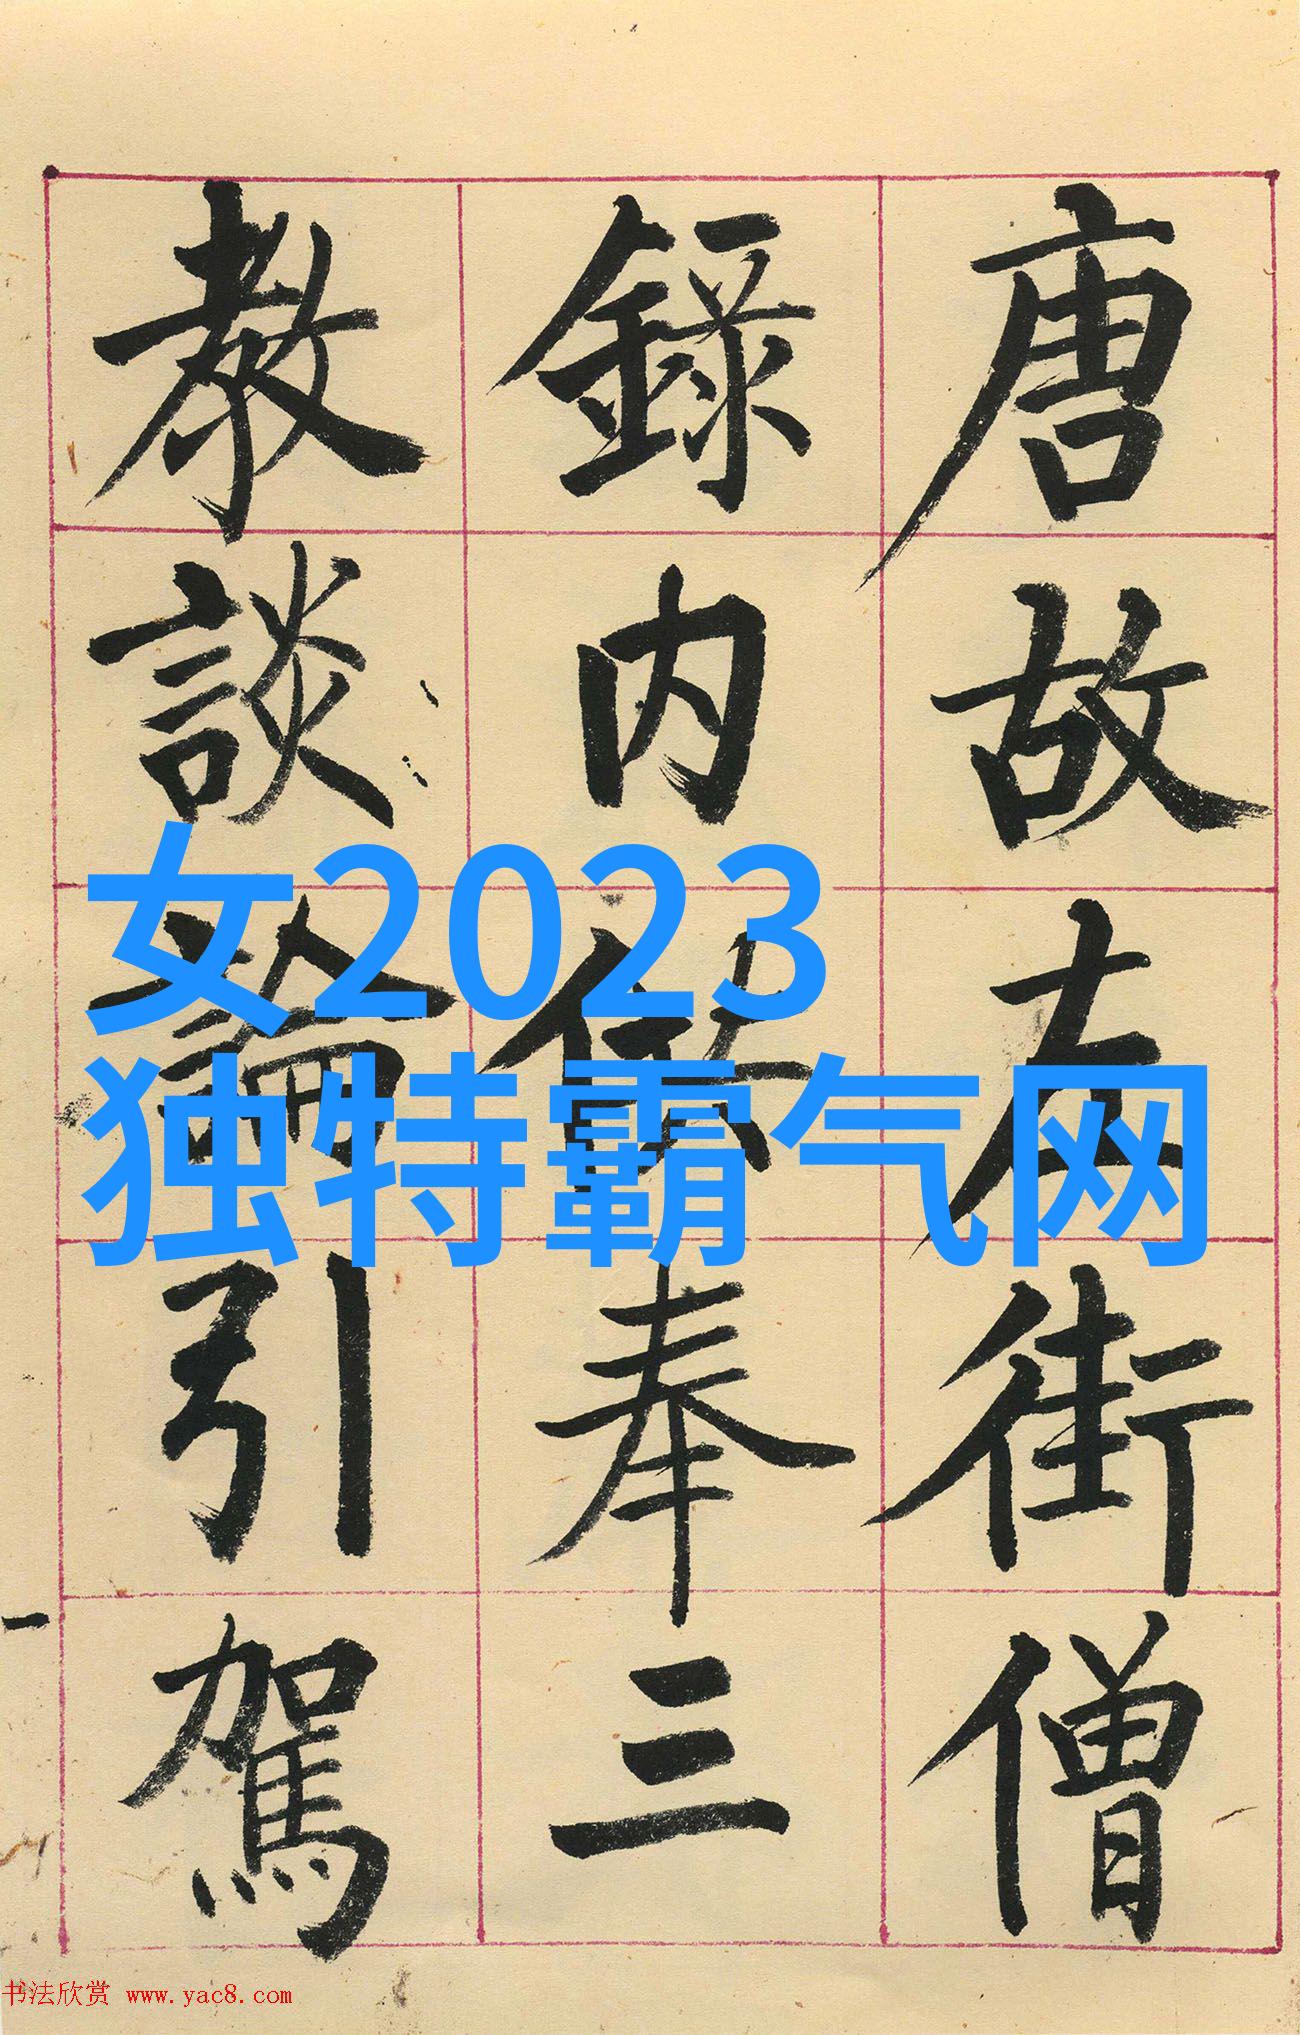 唐故左街僧
錄内供奉三
教談論引駕
女2023
独特霸气网
书法欣赏 www.yac8.com